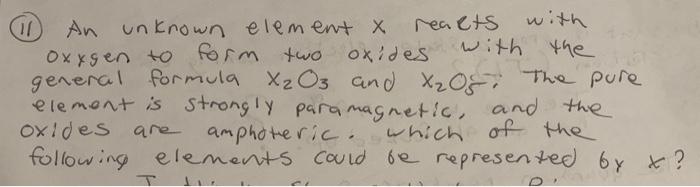 (11) An unknown element x reacts with
oxygen to form two oxides with the
general formula X₂O₃ and X₂O₅. The pure
element is strongly paramagnetic, and the
oxides are amphoteric. which of the
following elements could be represented by x?